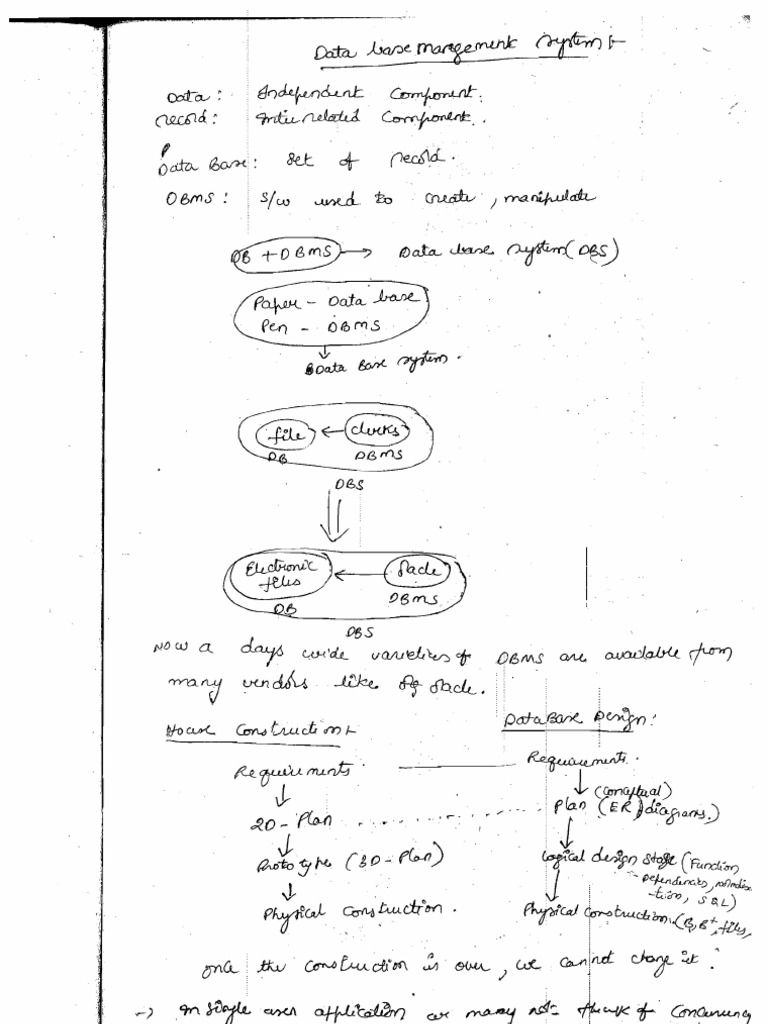 Data base management system :-
Data : Independent Component.
record : Inter related Component.
Data Base : Set of record.
DBMS : S/W used to create, manipulate
DB + DBMS → Data base system (DBS)
Paper - Data base
Pen - DBMS
↓
Data Base system.
file ← clerks
DB DBMS
DBS
Electronic files ← Oracle
DB DBMS
DBS
Now a days wide varieties of DBMS are available from
many vendors like Oracle.
House Construction :-
Requirements
↓
2D - Plan
↓
Proto type (3D - Plan)
↓
Physical Construction.
DataBase Design :
Requirements.
↓ (Conceptual)
Plan (ER) diagrams.)
↓
Logical design stage (Function
Dependencies,
tion, SQL)
↓
Physical construction. (B, B+, files,
once the construction is over, we cannot change it.
→ In single user application we may not think of Concurrency